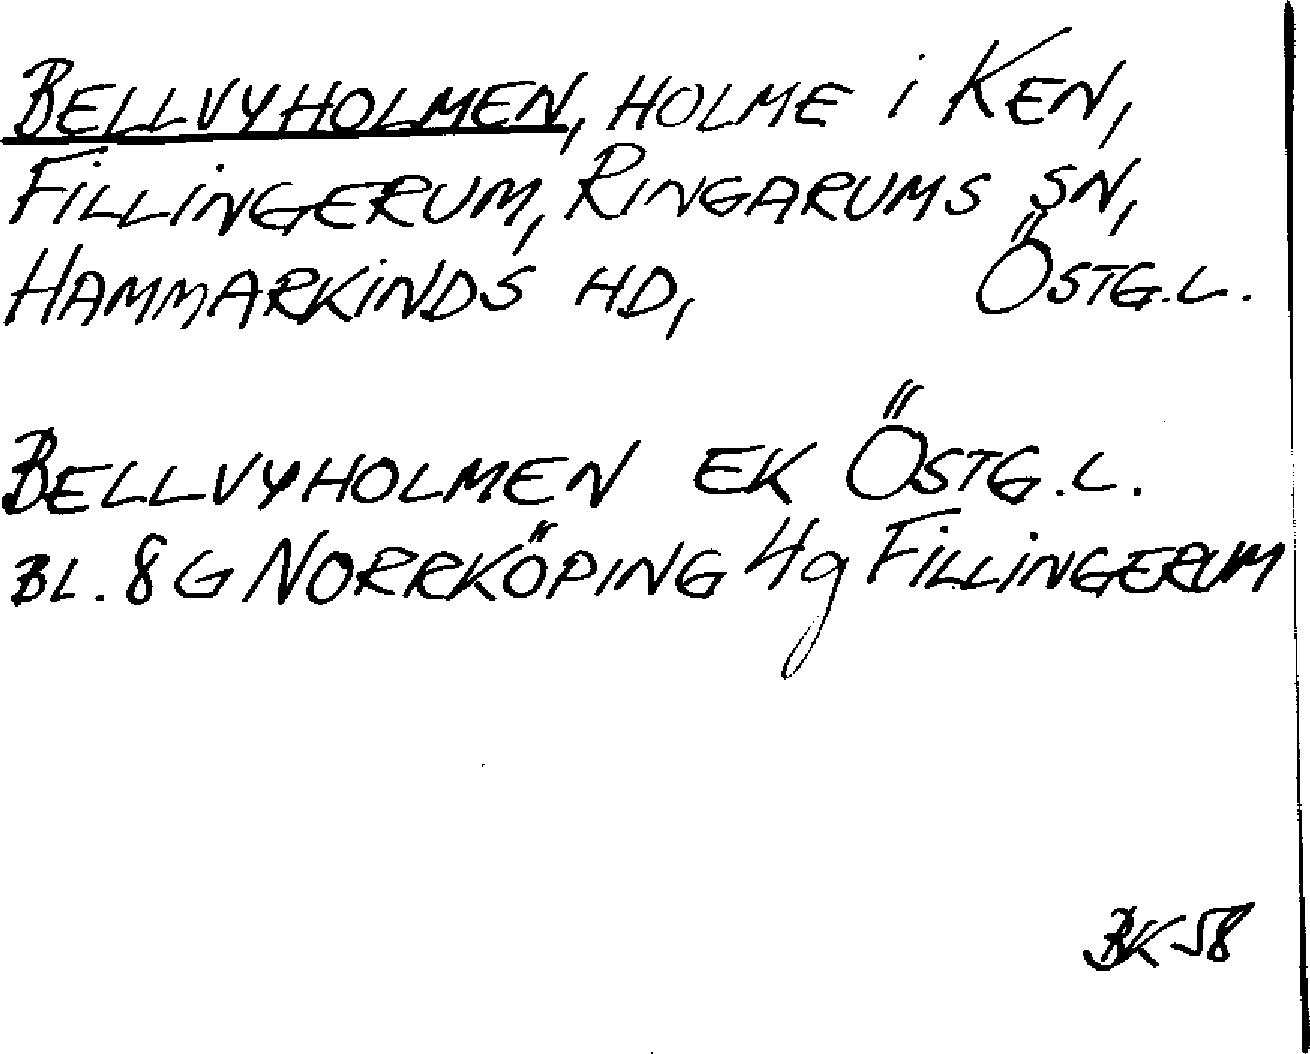 BELLVYHOLMEN, HOLME i KEN,
FiLLiNGERUM, RINGARUMS SN,
HAMMARKiNDS HD, ÖSTG.L.
BELLVYHOLMEN EK ÖSTG.L.
BL. 8 G NORRKÖPING 4g FiLLiNGERUM
BK 58